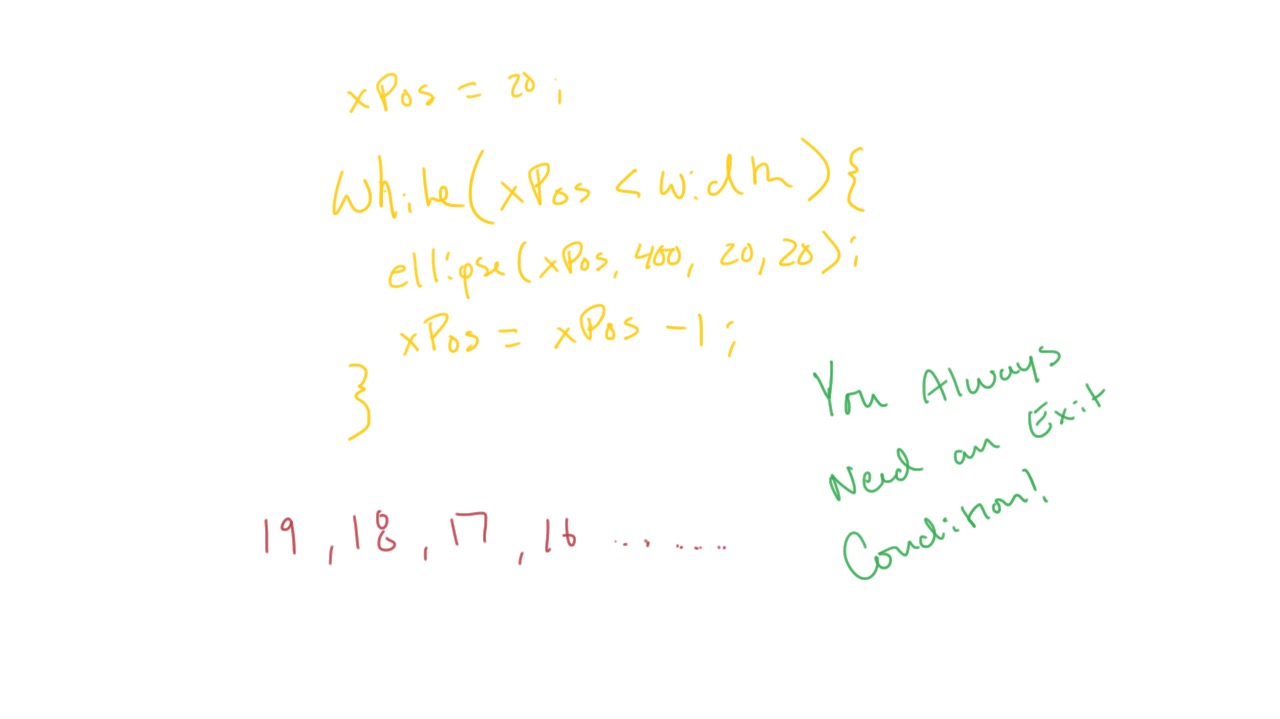 xPos = 20;
while(xPos < width){
ellipse(xPos, 400, 20, 20);
xPos = xPos -1;
}
You Always
Need an Exit
Condition!
19, 18, 17, 16 ..........